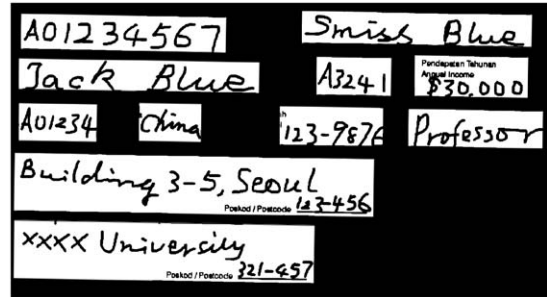 A01234567
Smiss Blue
Jack Blue
A3241
Pendapatan Tahunan
Annual Income
$30,000
A01234
China
123-9876
Professor
Building 3-5, Seoul
Poskod / Postcode 123-456
xxxx University
Poskod / Postcode 321-457